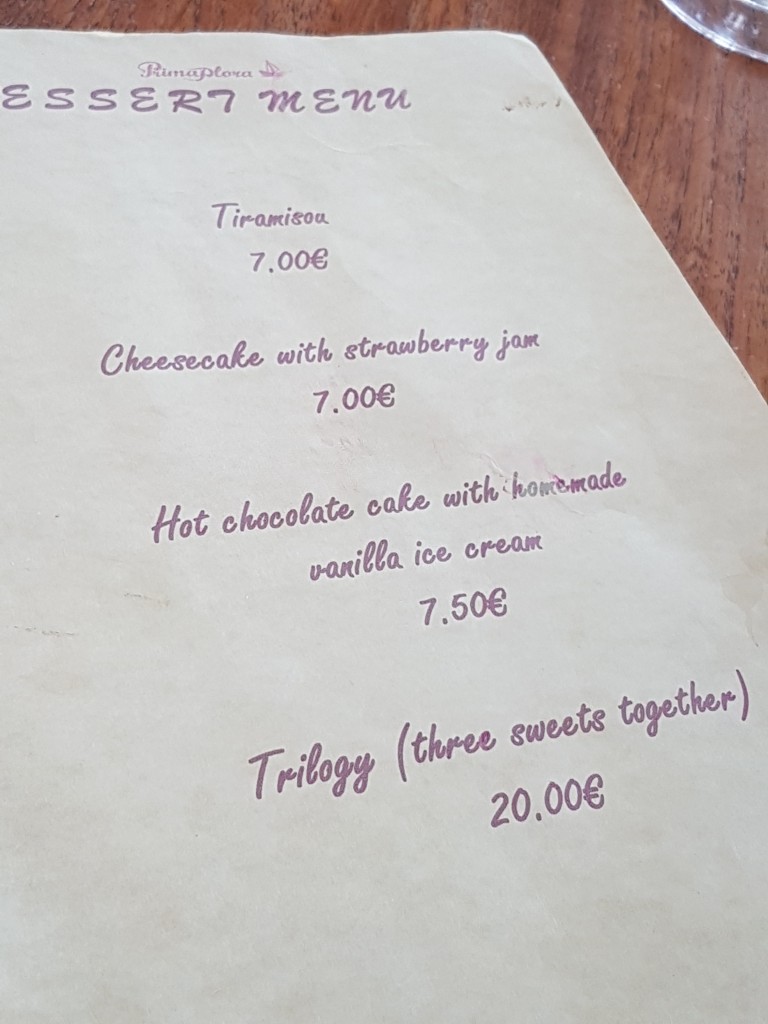 Primaplora
ESSERT MENU
Tiramisou
7.00€
Cheesecake with strawberry jam
7.00€
Hot chocolate cake with homemade
vanilla ice cream
7.50€
Trilogy (three sweets together)
20.00€